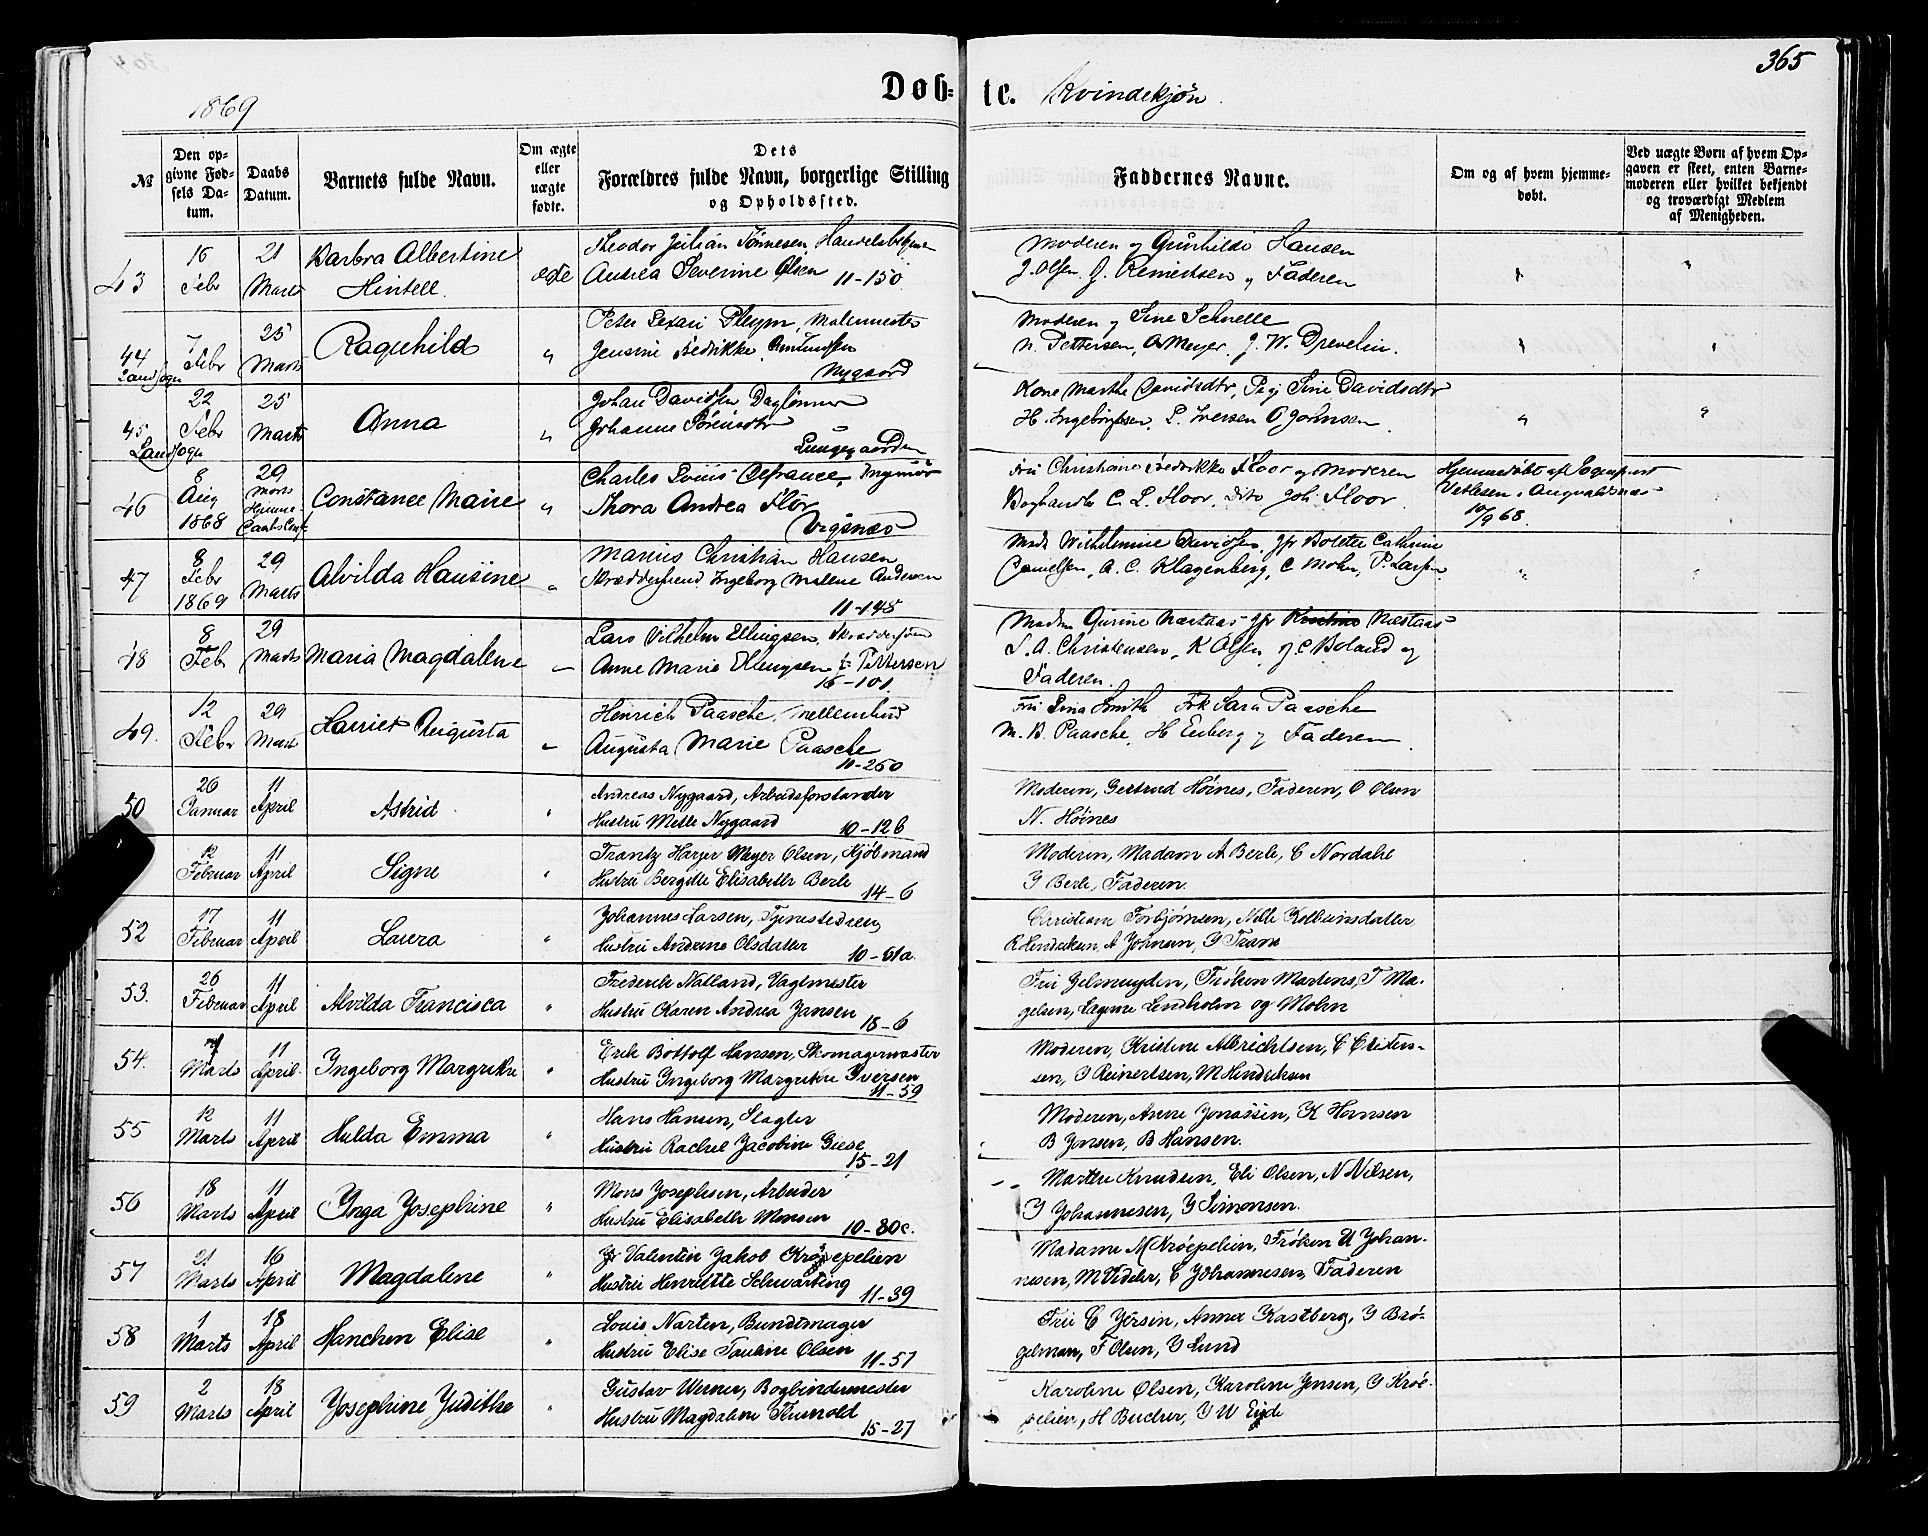 365
1869
Døb=te. Kvindekjøn.
№ | Den opgivne Fødsels Datum. | Daabs Datum. | Barnets fulde Navn. | Om ægte eller uægte fødte. | Dets Forældres fulde Navn, borgerlige Stilling og Opholdssted. | Faddernes Navne. | Om og af hvem hjemmedøbt. | Ved uægte Børn af hvem Opgaven er skeet, enten Barnemoderen eller hvilket bekjendt og troværdigt Medlem af Menigheden.
43 | 16 Febr | 21 Marts | Barbra Albertine | Theodor Julian Tønnesen | Moderen og Gunhilde Hansen
Andrea Severine Olsen 11-150 | J. Olsen, J. Reinertsen og Faderen
44 Landsogn | 7 Febr | 25 Marts | Ragnhild | " | Peter | Malermester | Moderen og Sine Schnelle
Nygaard | N. Pettersen, A Meyer, J. W. Drevelin.
45 Landsogn | 22 Febr | 25 Marts | Anna | " | Johan Davidsen Daglønner | Kone Marthe Davidsdtr, Pige Sine Davidsdtr
Johanne Sørensdtr Lungegaarden | H. Ingebrigtsen, L. Iversen O, Johnsen | "
46 | 8 Aug 1868 | 29 Marts | Constance Marie | " | Charles Louis Defrance, Ingeniør | Fru Christiane Fredrikke Floor og Moderen | Hjemmedøbt af Sognepræst
Thora Andrea Flor Vigsnæs | Boghandler C. L. Floor, Dito Joh. Floor | 10/9 68.
47 | 8 Febr 1869 | 29 Marts | Alvilda Hansine | " | Marius Christian Hansen | Mad. Wilhelmine Davidsen, Jfr Bolette Cathrine
Skræddersvend Ingeborg Malene Andersen 11-148 | Danielsen, A. C. Klagenberg, C Mohn, P. Larsen
48 | 8 Feb | 29 Marts | Maria Magdalene | " | Lars Vilhelm Ellingsen, | Madm Gurine Næstaas Jfr Næstaas
Anne Marie Ellingsen f: Pettersen 16-101. | L. A. Christensen, K Olsen, J C Boland og
Faderen.
49. | 12 Febr | 29 Marts | Harriet Augusta | " | Henrich Paasche, | Fru Lina Smith Frk Sara Paasche
Augusta Marie Paasche 11-260 | M. B. Paasche, H Enberg og Faderen
50 | 26 Januar | 11 April | Astrid | " | Andreas Nygaard, Arbeidsforstander | Moderen, Gertrud Høines, Faderen, O Olsen
Hustru Mette Nygaard 10-126 | N. Høines
12 Februar | 11 April | Signe | " | Frantz Harjer Meyer Olsen, Kjøbmand | Moderen, Madam A Berle, C Nordahl
Hustru Bergitte Elisabeth Berle 14-6 | J Berle, Faderen.
52 | 17 Februar | 11 April | Laura | " | Johannes Larsen, Tjenestedreng | Christiane Torbjørnsen, Nille Kolbeinsdatter
Hustru Andrine Olsdatter 10-61a | R Hendriksen, A Johnsen, J Trane
53. | 26 Februar | 11 April | Alvilda Francisca | " | Frederik Natland, Vagtmester | Fru Gelmuyden, Frøken Martens, T Ma-
Hustru Karen Andrea Jansen 18-6 | gelsen, Lagerne Lindholm og Mohn
54. | Marts | 11 April. | Ingeborg Margrethe | " | Erik Bottolf Hansen, Skomagermester | Moderen, Kristine Albrichtsen, C Eliten-
Hustru Ingeborg Margrethe Iversen 11-59 | sen, J Reinertsen, M Hendriksen
55 | 12 Marts | 11 April | Hulda Emma | " | Hans Hansen, Slagter | Moderen, Anne Jonassen, K Hansen
Hustru Rachel Jacobine Giese 15-21 | B Jensen, B Hansen.
56 | 18 Marts | 11 April | Inga Josephine | " | Mons Josephsen, Arbeider | Marthe Knudsen, Eli Olsen, N Nilsen,
Hustru Elisabeth Monsen 10-80c. | J Johannesen, J Simonsen.
57 | 21 Marts | 16 April | Magdalene | " | Valentin Jakob Krøepelien | Madame M Krøepelien, Frøken U Johan-
Hustru Henriette Schwarting 11-39 | nesen, M Vedeler, C Johannesen, Faderen
58 | 1 Marts | 18 April | Hanchen Elise | " | Louis Narten, Bundtmager | Fru C Jersin, Anna Kastberg, J Brø-
Hustru Elise Pauline Olsen 11-57 | gelman, F Olsen, J Lund
59 | 2 Marts | 18 April | Josephine Judithe | " | Gustav Werner, Bogbindermester | Karoline Olsen, Karoline Jensen, J Krøe-
Hustru Magdalene 15-27 | pelien, H Bucher, J W Eide